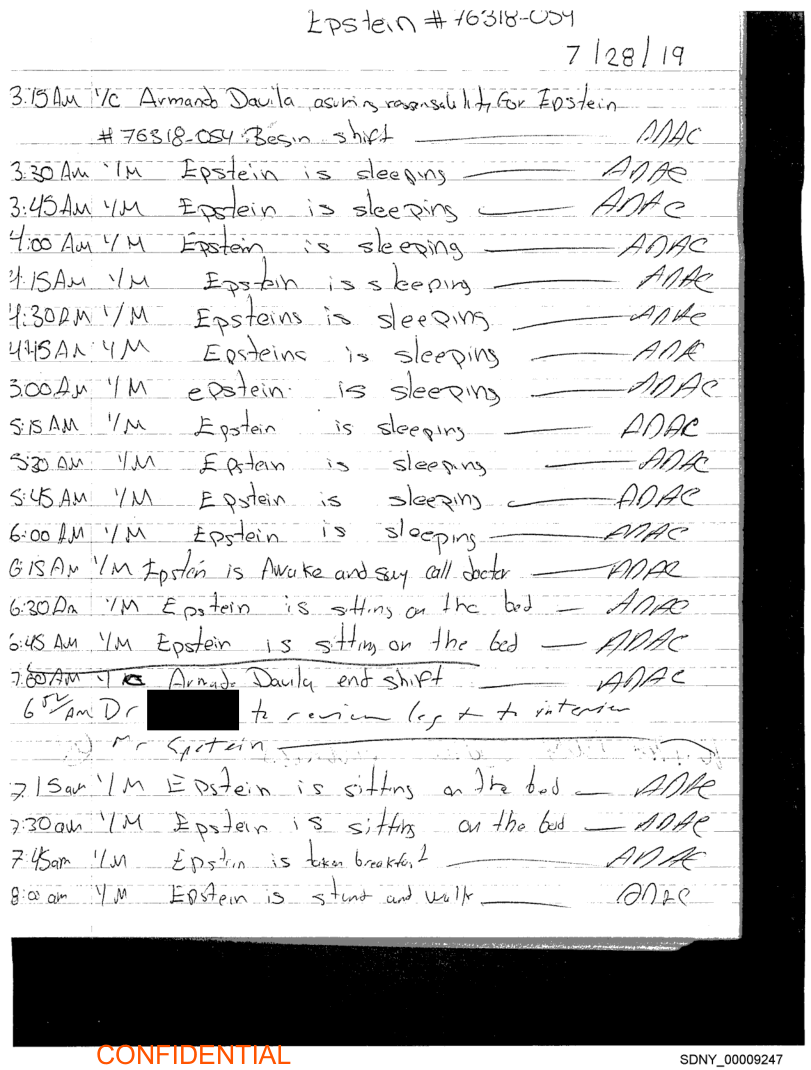 Epstein # 76318-054
7/28/19
3:15 AM I/C Armando Davila, asuring responsability for Epstein
# 76318-054. Begin shift ADAC
3:30 AM I/M Epstein is sleeping ADAC
3:45 AM I/M Epstein is sleeping ADAC
4:00 AM I/M Epstein is sleeping ADAC
4:15 AM I/M Epstein is sleeping ADAC
4:30 AM I/M Epsteins is sleeping ADAC
4:45 AM I/M Epsteins is sleeping ADAC
5:00 AM I/M epstein is sleeping ADAC
5:15 AM I/M Epstein is sleeping ADAC
5:30 AM I/M Epstein is sleeping ADAC
5:45 AM I/M Epstein is sleeping ADAC
6:00 AM I/M Epstein is sleeping ADAC
6:15 AM I/M Epstein is Awake and say call doctor ADAC
6:30 AM I/M Epstein is sitting on the bed ADAC
6:45 AM I/M Epstein is sitting on the bed ADAC
7:00 AM Armando Davila end shift ADAC
6 52/AM Dr to review log + to interview
Mr Epstein
7:15 am I/M Epstein is sitting on the bed ADAC
7:30 am I/M Epstein is sitting on the bed ADAC
7:45 am I/M Epstein is taken breakfast ADAC
8:00 am I/M Epstein is stand and walk ADAC
CONFIDENTIAL
SDNY_00009247